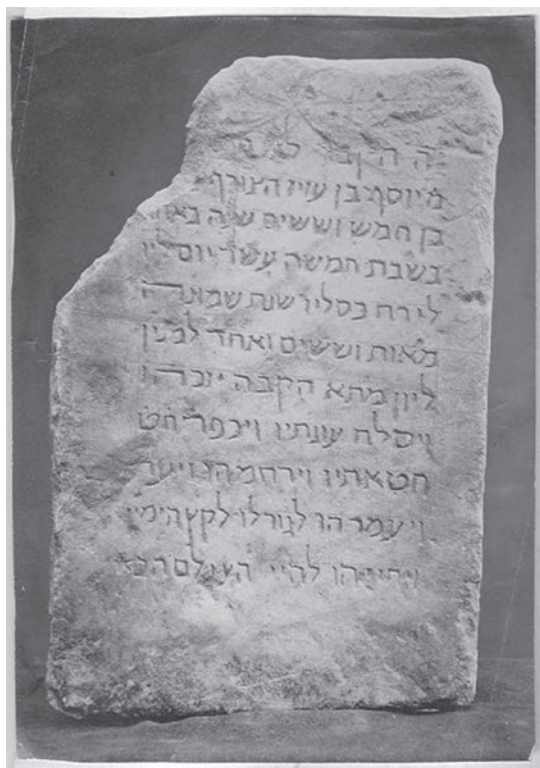 זה הקבר
מ יוסף בן עזיז הצורף
בן חמש וששים שנה
בשבת חמשה עשר יום
לירח כסליו שנת שמונה
מאות וששים ואחד למנין
ליון מתא הקבה יזכרהו
ויסלח עונתיו ויכפר חט
חטאתיו וירחמהו
ויעמרהו לגורלו לקץ הימין
ויחייהו לחיי העולם הבא